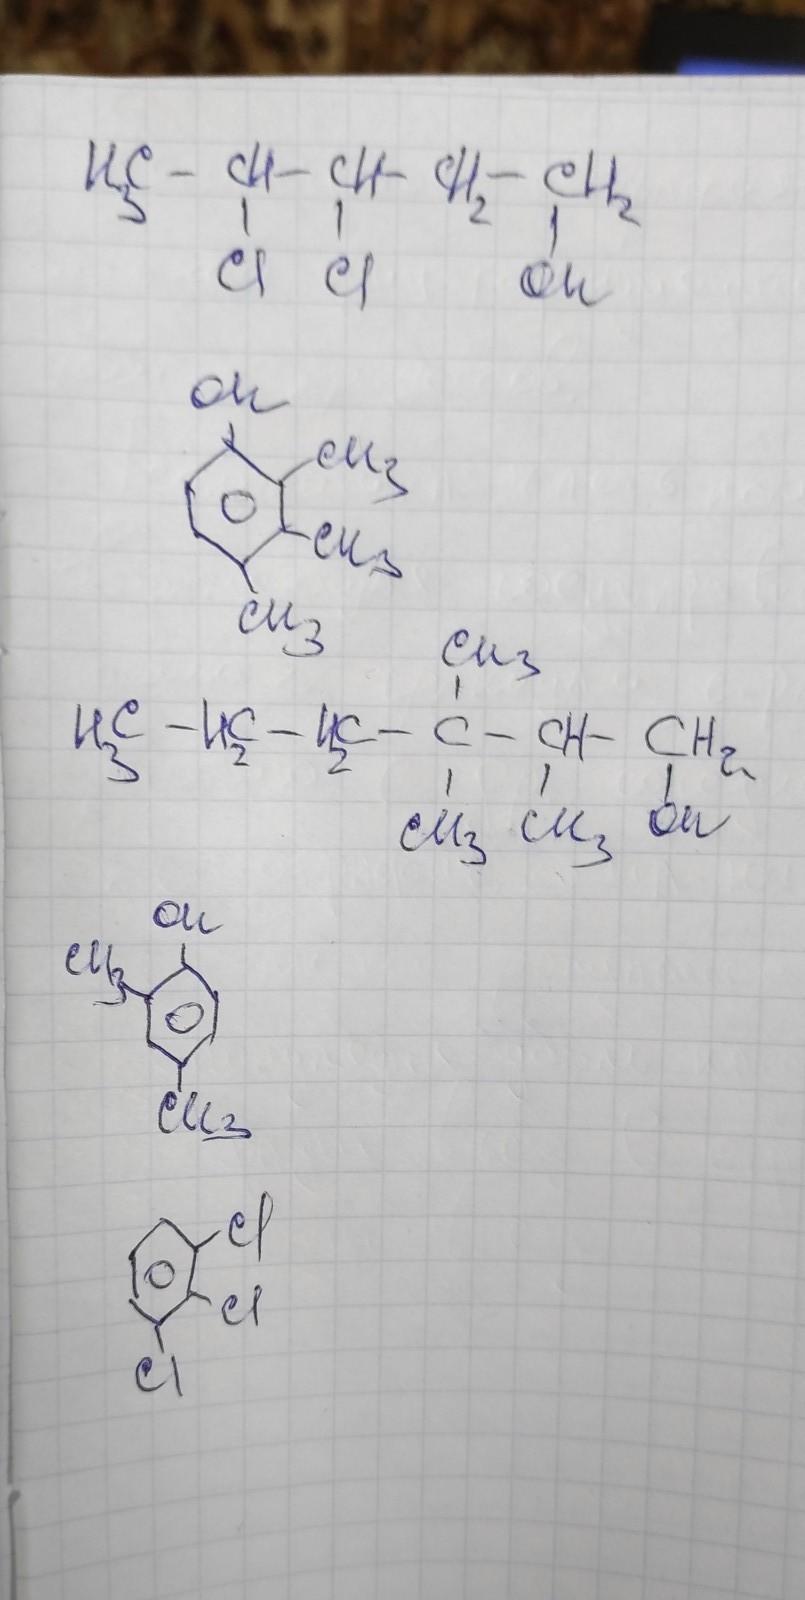 H₃C - CH - CH - CH₂ - CH₂
Cl Cl OH
OH
CH₃
CH₃
CH₃
CH₃
H₃C - H₂C - H₂C - C - CH - CH₂
CH₃ CH₃ OH
OH
CH₃
CH₃
Cl
Cl
Cl